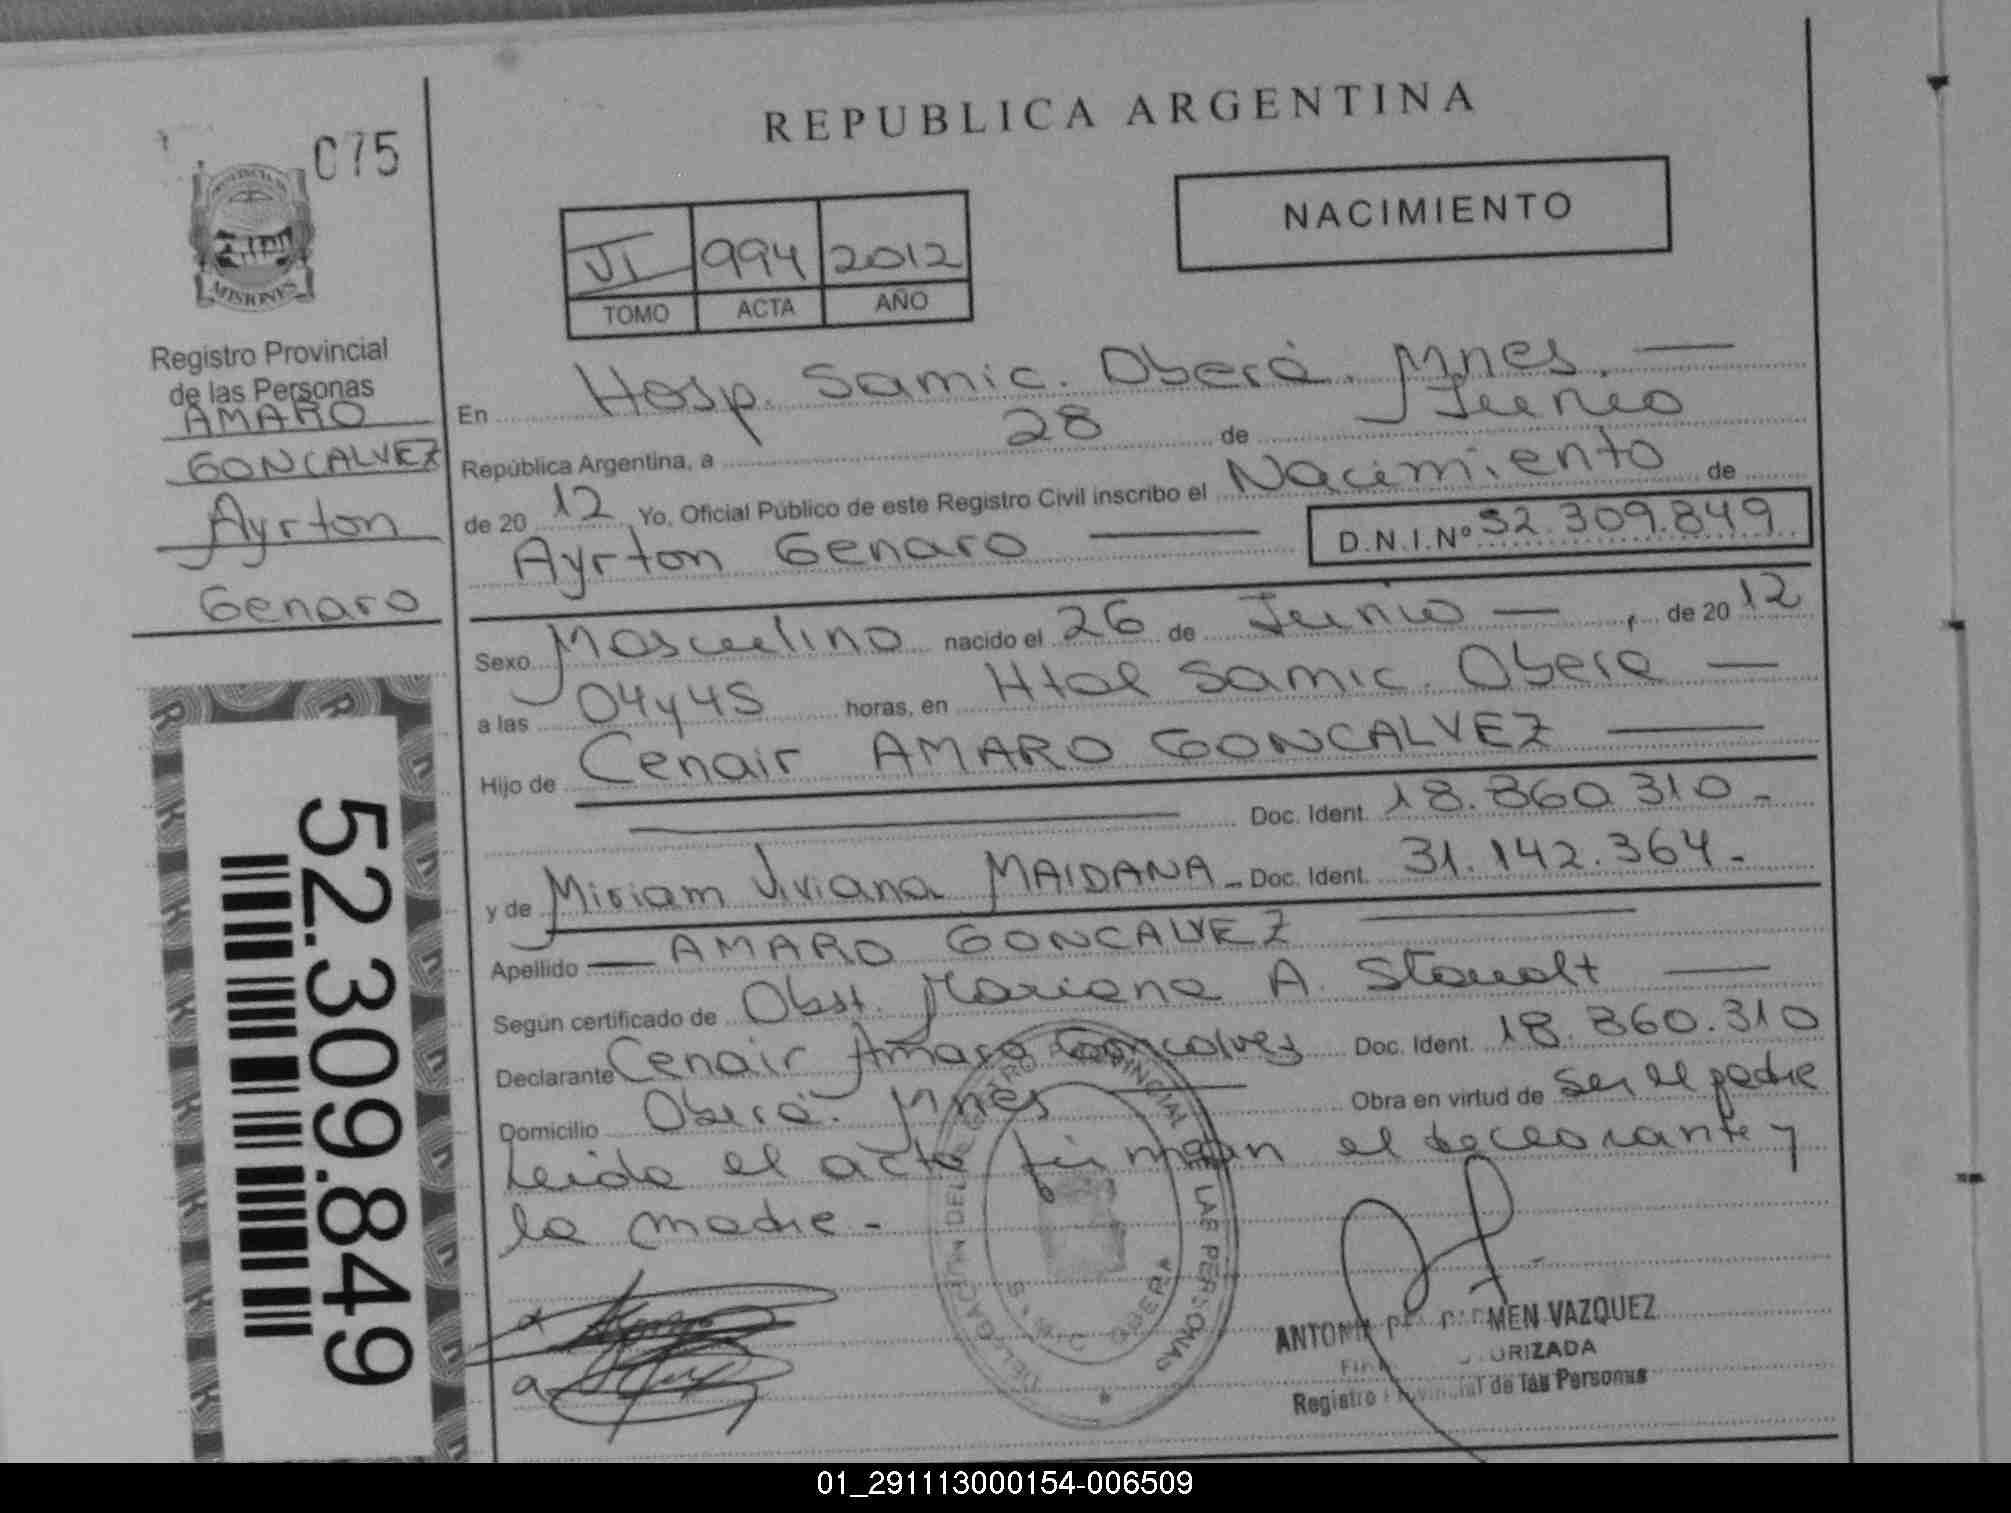 REPUBLICA ARGENTINA
075
NACIMIENTO
VI 994 2012
TOMO ACTA AÑO
PROVINCIA DE
MISIONES
Registro Provincial
de las Personas
AMARO
GONCALVEZ
Ayrton
Genaro
52.309.849
En Hosp. Samic. Oberá. Mnes.
República Argentina, a 28 de Junio
de 20 12 Yo, Oficial Público de este Registro Civil inscribo el Nacimiento de
Ayrton Genaro D.N.I.Nº 52.309.849
Sexo Masculino nacido el 26 de Junio, de 20 12
a las 04y45 horas, en Htal Samic. Obera
Hijo de Cenair AMARO GONCALVEZ
Doc. Ident. 18.860.310-
y de Miriam Viviana MAIDANA - Doc. Ident. 31.142.364-
Apellido AMARO GONCALVEZ
Según certificado de Obst. Mariana A.
Declarante Cenair Amaro Goncalves Doc. Ident. 18.860.310
Domicilio Oberá. Mnes Obra en virtud de ser el padre
Leida el acta firman el declarante y
la madre -
DELEGACION DEL REGISTRO PROVINCIAL DE LAS PERSONAS
OBERA
CARMEN VAZQUEZ
AUTORIZADA
Registro Provincial de las Personas
01_291113000154-006509